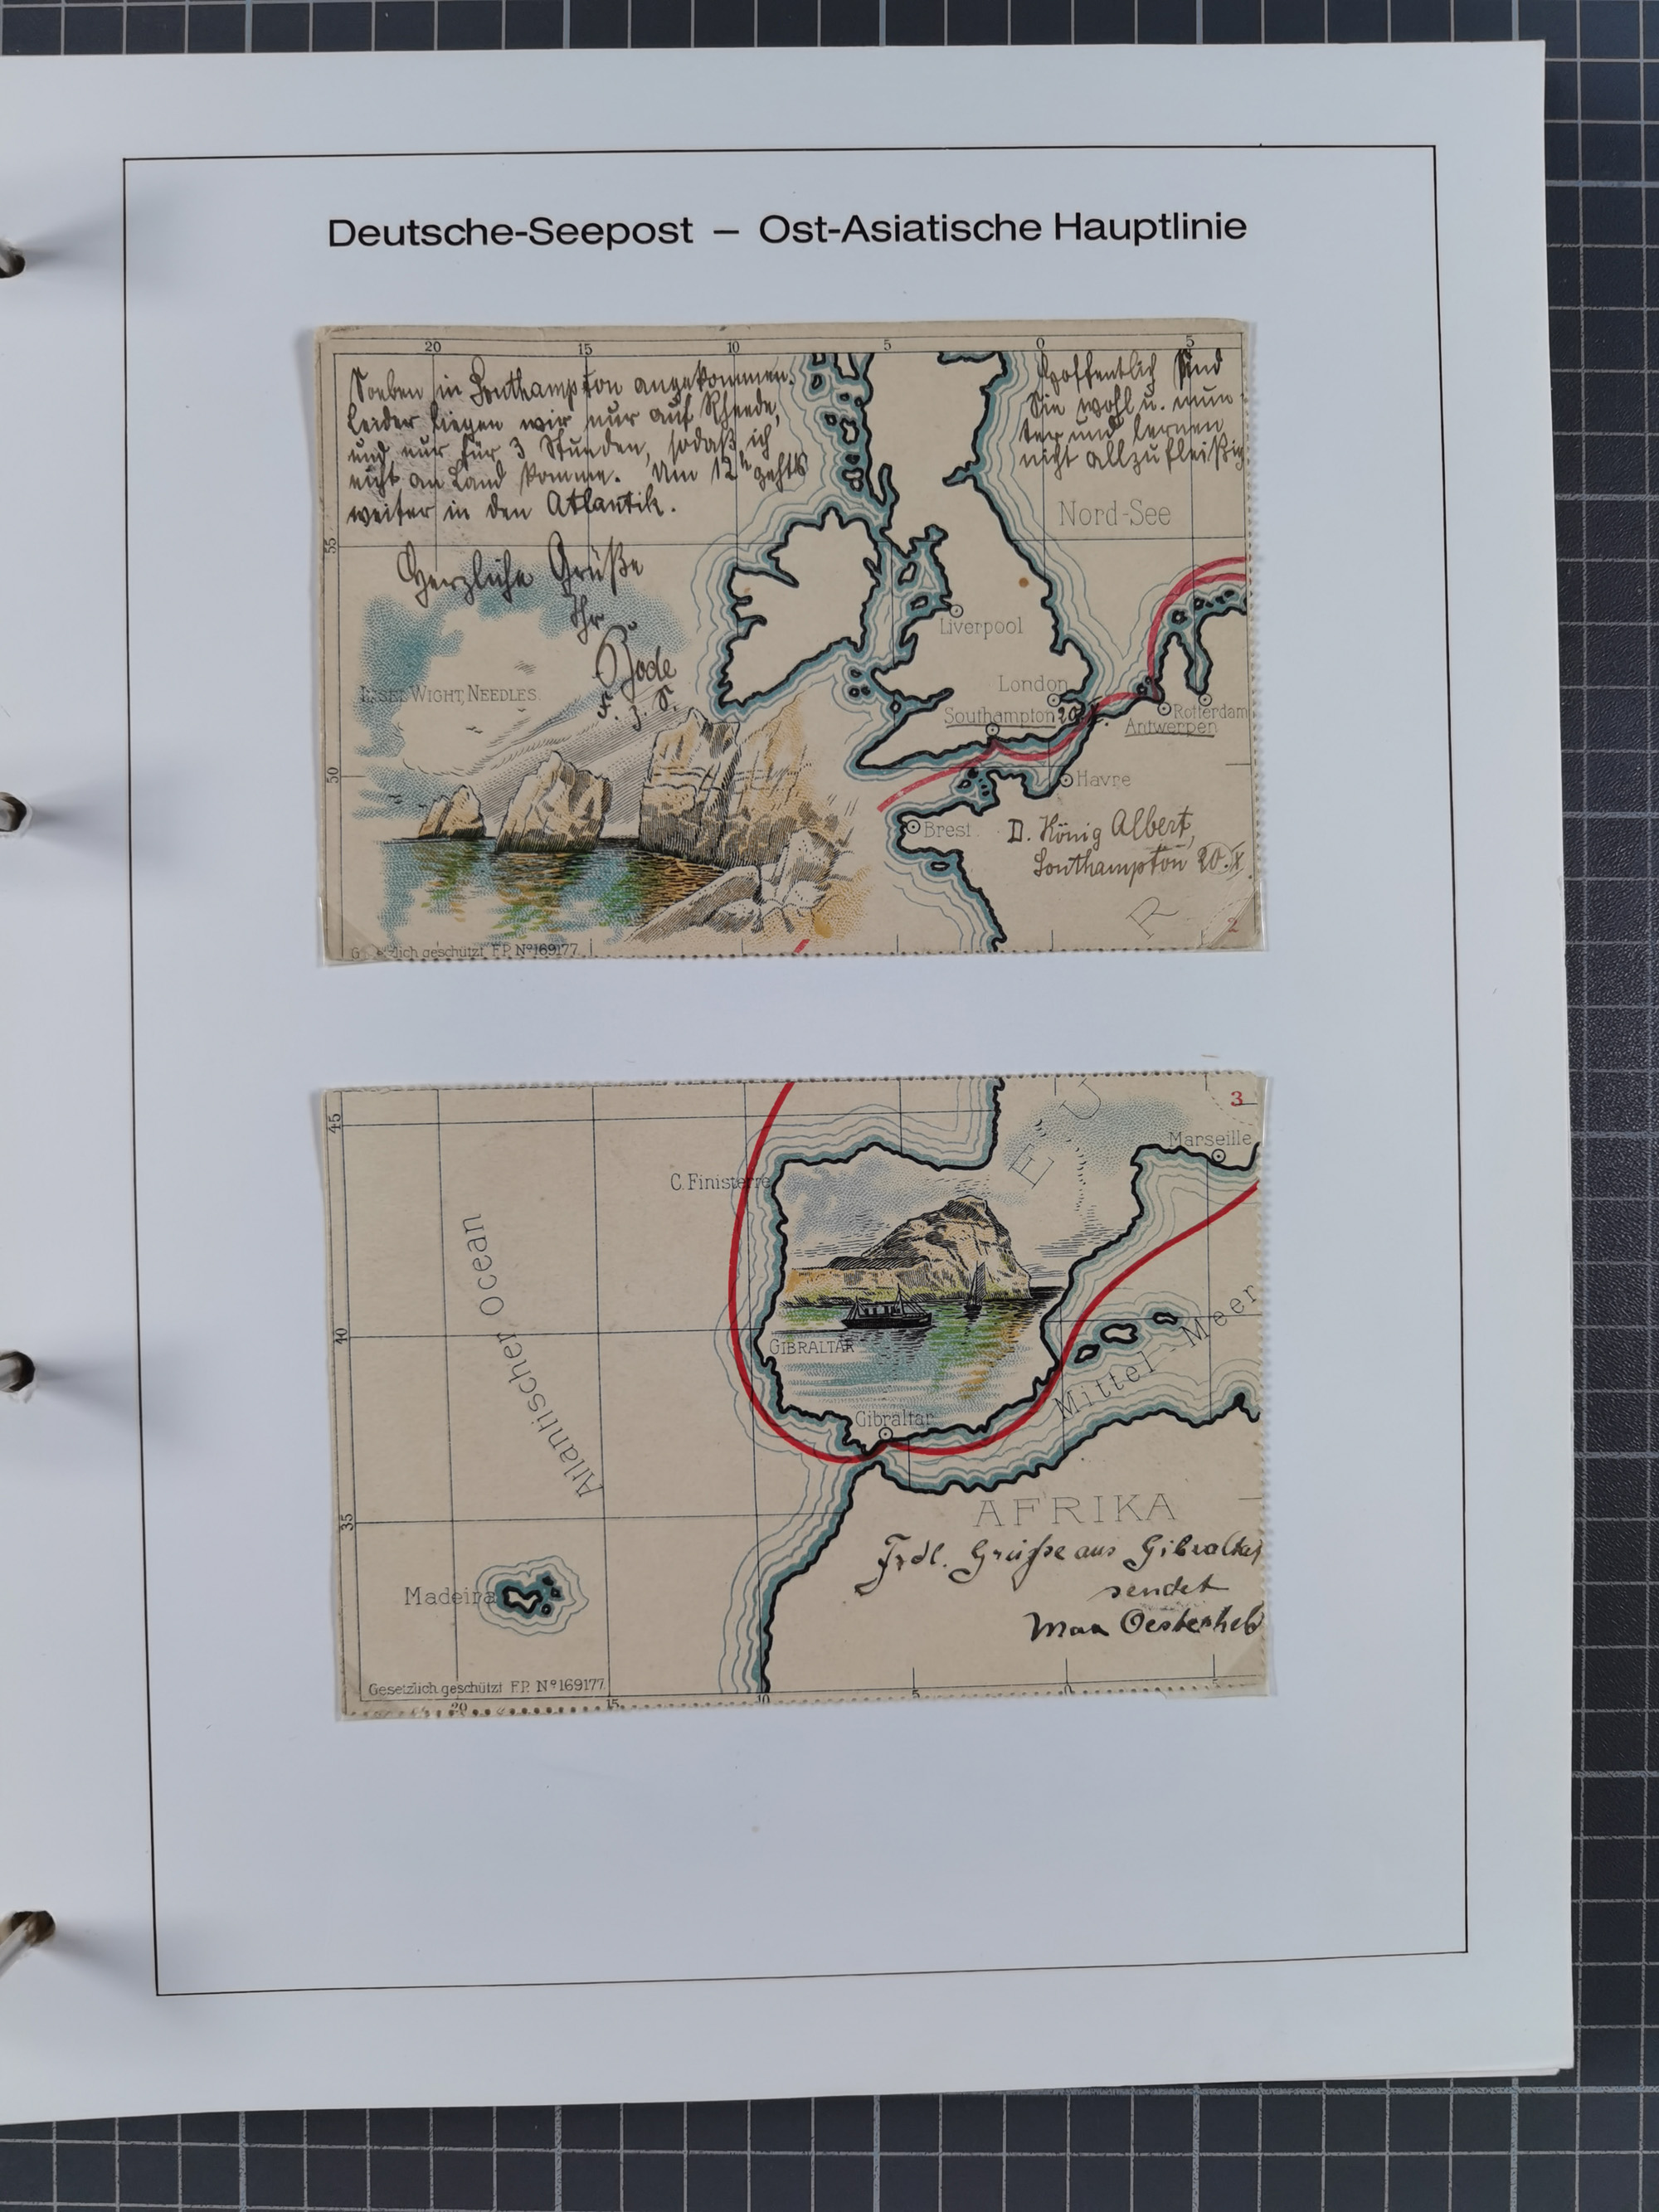 Deutsche-Seepost – Ost-Asiatische Hauptlinie
20 15 10 5 0 5
Soeben in Southampton angekommen.
Leider liegen wir nur auf Rheede,
und nur für 3 Stunden, sodaß ich
nicht an Land komme. Um 12h gehts
weiter in den Atlantik.
Herzliche Grüße
Ihr
Bode
Hoffentlich sind
Sie wohl u. mun-
ter und lernen
nicht allzufleißig.
Nord-See
55
Liverpool
INSEL WIGHT, NEEDLES
London
Southampton
Rotterdam
Antwerpen
50
Havre
Brest
D. König Albert,
Southampton 20.X.
R
2
Gesetzlich geschützt F.P. Nº 169177
3
45
E U
Marseille
C. Finisterre
Atlantischer Ocean
40
GIBRALTAR
Mittel-Meer
Gibraltar
35
AFRIKA
Frdl. Grüße aus Gibraltar
sendet
Max Oesterheld
Madeira
Gesetzlich geschützt F.P. Nº 169177
20 15 10 5 0 5